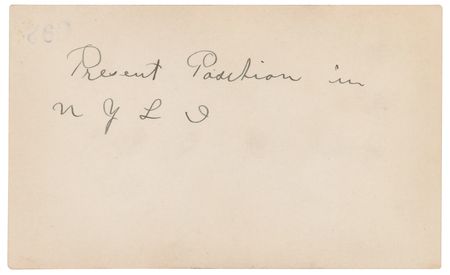 Present Position in
N Y L I